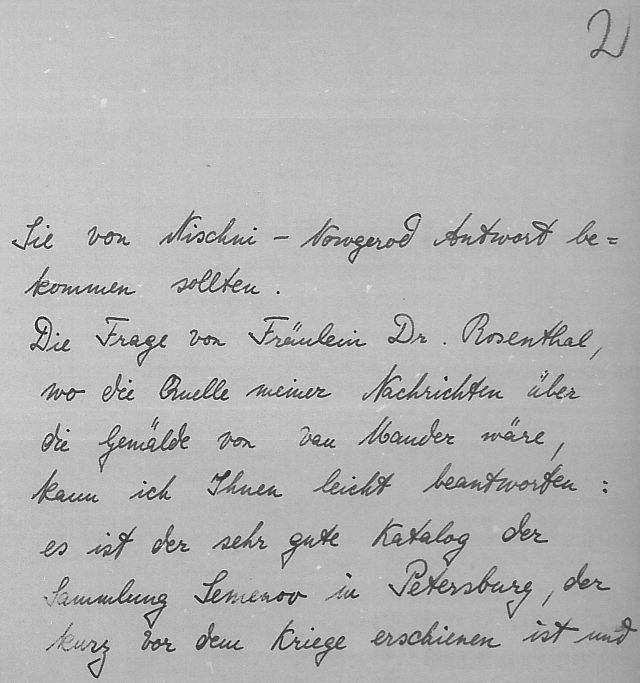 2
Sie von Nischni - Nowgerod Antwort be=
kommen sollten.
Die Frage von Fräulein Dr. Rosenthal,
wo die Quelle meiner Nachrichten über
die Gemälde von van Mander wäre,
kann ich Ihnen leicht beantworten:
es ist der sehr gute Katalog der
Sammlung Semenov in Petersburg, der
kurz vor dem Kriege erschienen ist und